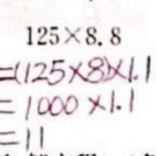 125×8.8
=(125×8)×1.1
=1000×1.1
=11